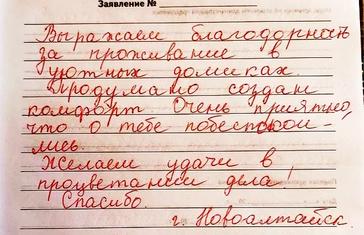 Заявление №
Выражаем благодорность
за проживание в
уютных домиках.
Продумано создан
комфорт Очень приятно,
что о тебе побеспокои-
лись.
Желаем удачи в
процветании дела!
Спасибо.
г. Новоалтайск.